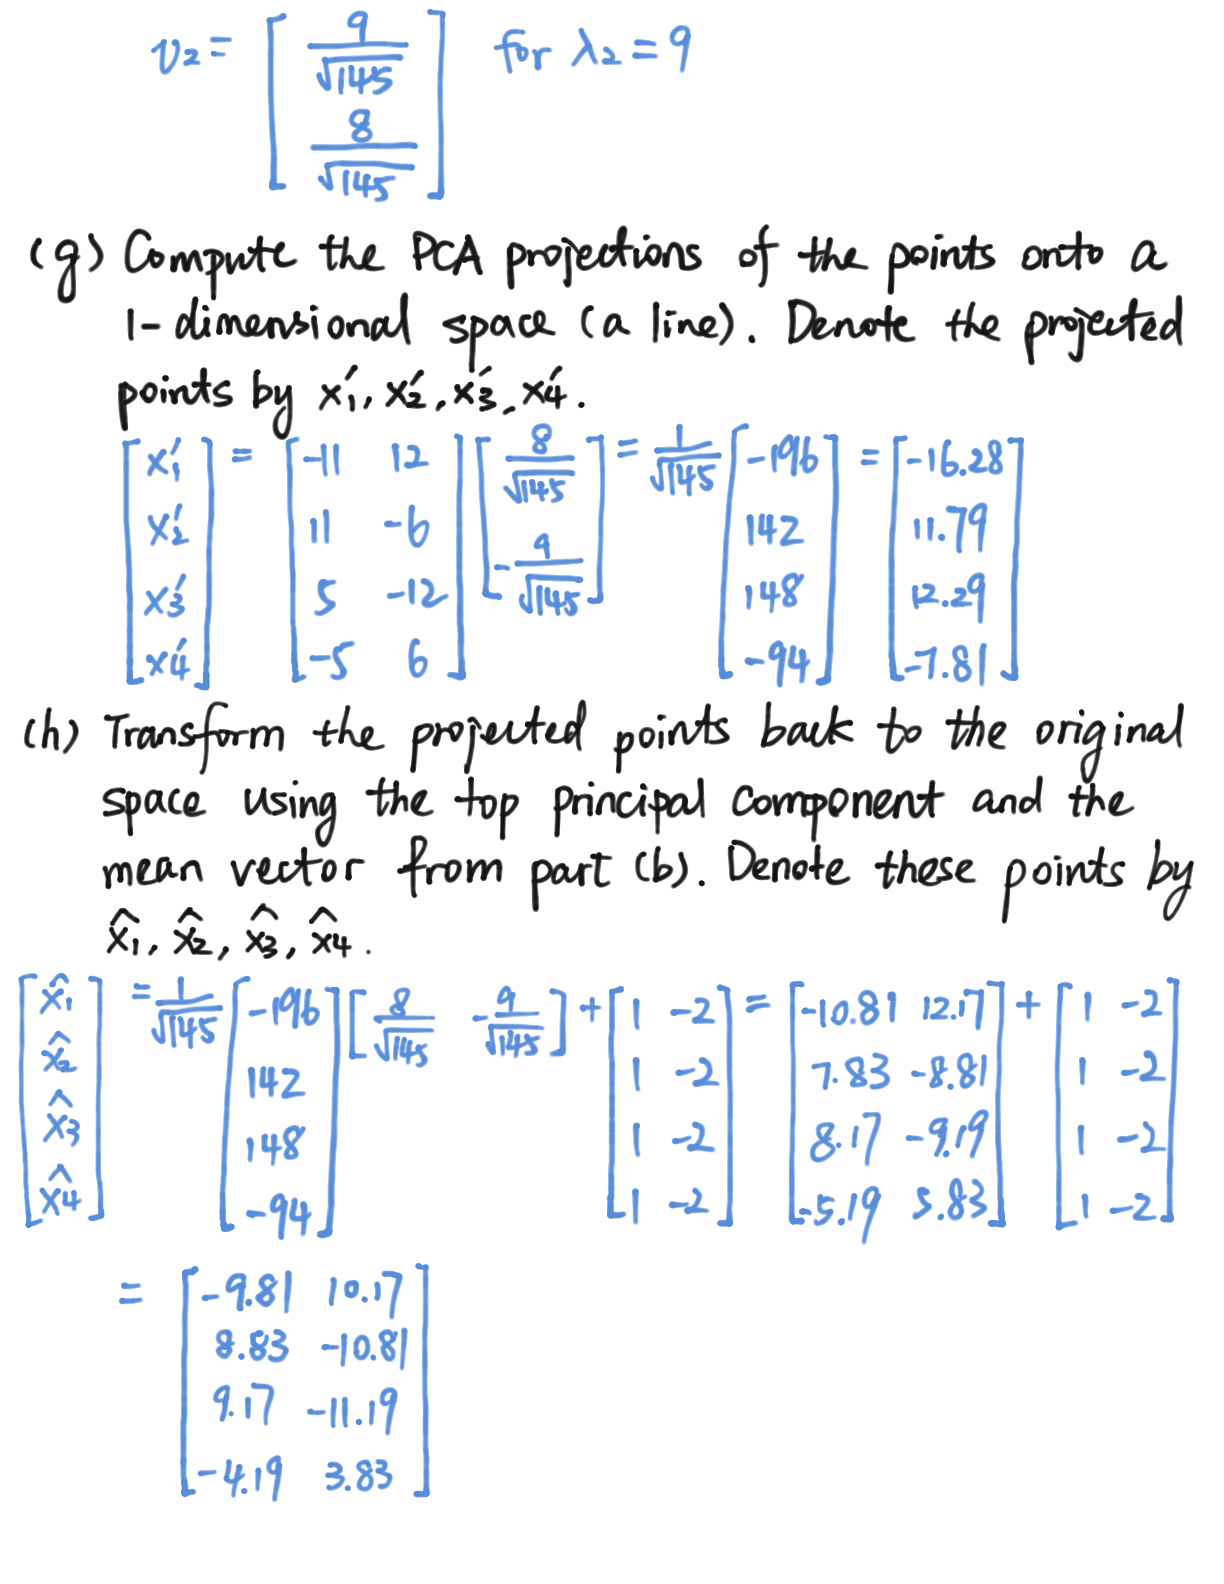 v₂ = [ 9/√145 ; 8/√145 ] for λ₂ = 9
(g) Compute the PCA projections of the points onto a
1-dimensional space (a line). Denote the projected
points by x₁', x₂', x₃', x₄'.
[ x₁' ; x₂' ; x₃' ; x₄' ] = [ -11 12 ; 11 -6 ; 5 -12 ; -5 6 ] [ 8/√145 ; -9/√145 ] = 1/√145 [ -196 ; 142 ; 148 ; -94 ] = [ -16.28 ; 11.79 ; 12.29 ; -7.81 ]
(h) Transform the projected points back to the original
space using the top principal component and the
mean vector from part (b). Denote these points by
x̂₁, x̂₂, x̂₃, x̂₄.
[ x̂₁ ; x̂₂ ; x̂₃ ; x̂₄ ] = 1/√145 [ -196 ; 142 ; 148 ; -94 ] [ 8/√145 -9/√145 ] + [ 1 -2 ; 1 -2 ; 1 -2 ; 1 -2 ] = [ -10.81 12.17 ; 7.83 -8.81 ; 8.17 -9.19 ; -5.19 5.83 ] + [ 1 -2 ; 1 -2 ; 1 -2 ; 1 -2 ]
= [ -9.81 10.17 ; 8.83 -10.81 ; 9.17 -11.19 ; -4.19 3.83 ]